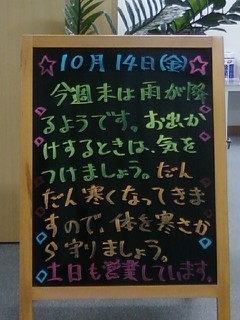 ☆10月14日(金)☆
今週末は雨が降
るようです。お出か
けするときは、気を
つけましょう。だん
だん寒くなってきま
すので、体を寒さか
ら守りましょう。
土日も営業しています。